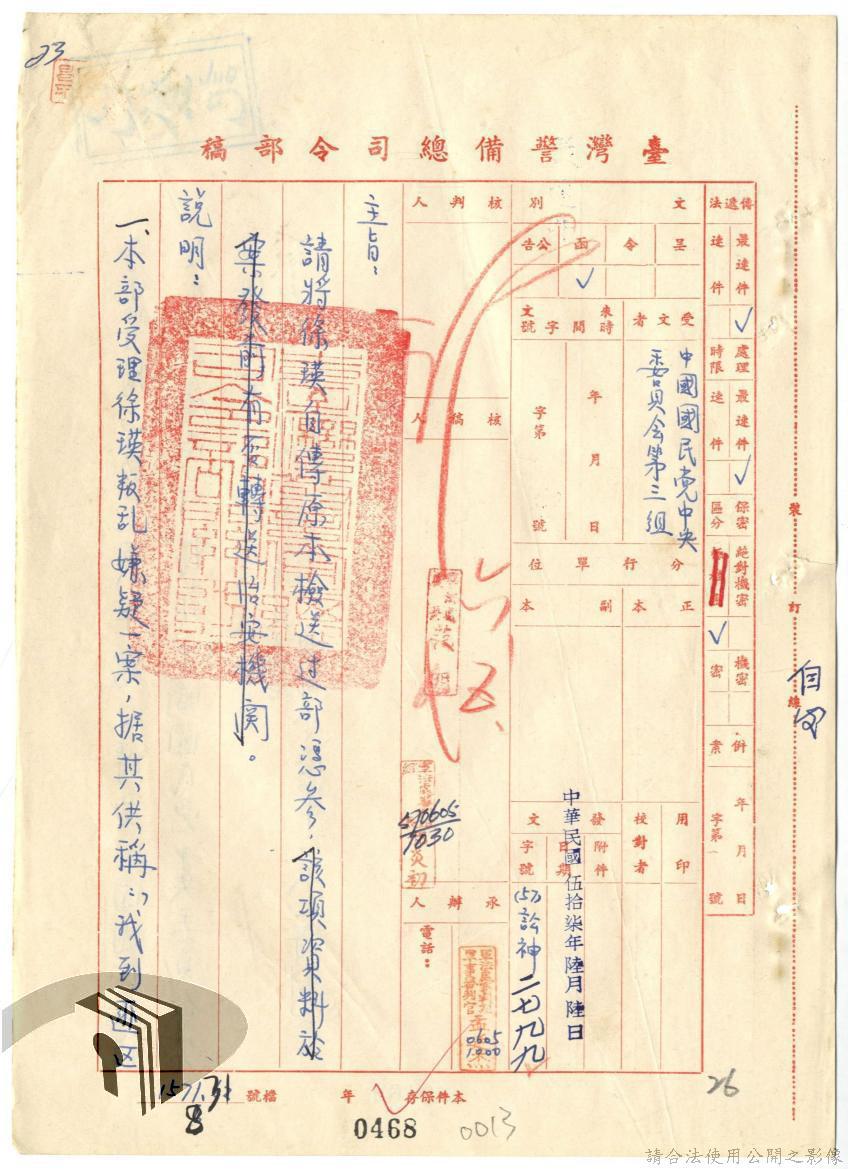 23
臺灣警備總司令部稿
傳遞法
最速件
速件
處理時限
最速件
速件
保密區分
絕對機密
機密
密
併案
年月日
字第號
文別
呈
令
函
公告
受文者
中國國民党中央
委員会第三組
來文
時間
字號
年月日
字第號
分行單位
正本
副本
用印
校對者
發文
附件
日期
字號
中華民國伍拾柒年陸月陸日
(57)訟神二七九九
核判人
核稿人
570605
1030
承辦人
電話：
0605
1000
主旨：
請將徐瑛自傳原本檢送过部憑參，該項資料於
案發前有否轉送治安機関。
說明：
一、本部受理徐瑛叛乱嫌疑一案，据其供稱：「我到匪区
裝訂線
本件保存 年
檔號
1571.31
8
0468
0013
26
請合法使用公開之影像